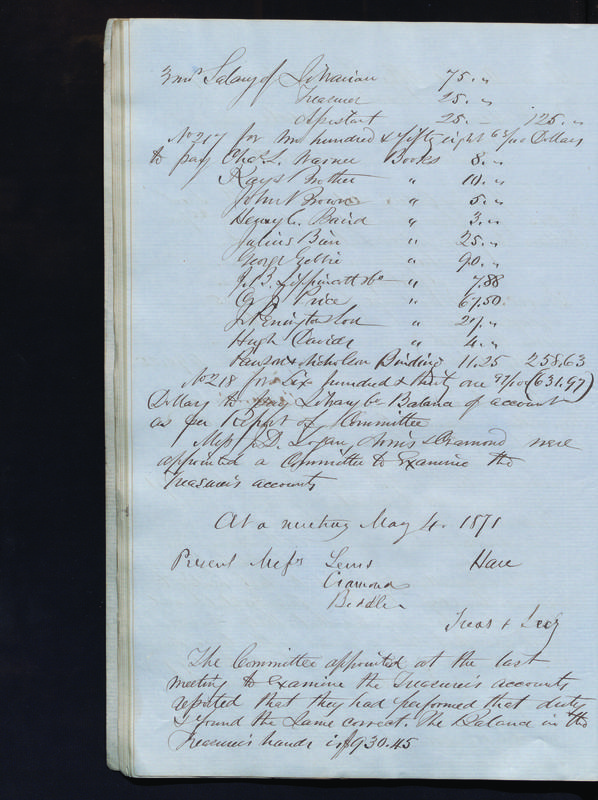 3 mos Salary of Librarian 75. "
Treasurer 25. "
Assistant 25. – 125. "
No 217 for two hundred & fifty eight 63/100 Dollars
to pay Chas. L. Warner Books 8. "
Kay & Brother " 10. "
John P. Brown " 5. "
Henry C. Baird " 3. "
Julius Bien " 25. "
George Gebbie " 90. "
J. B. Lippincott & Co " 7.88
J. Price " 67.50
J. Penington & Son " 27. "
Hugh Davids " 4. "
Pawson & Nicholson Binding 11.25 258.63
No 218 for Six hundred & thirty one 97/100 (631.97)
Dollars to pay Library Co Balance of account
as per Report of Committee
Messrs J. D. Logan, & Cramond were
appointed a Committee to Examine the
Treasurer's accounts
At a meeting May 4. 1871
Present Messrs Lewis Hare
Cramond
Biddle
Treas & Secy
The Committee appointed at the last
meeting to Examine the Treasurer's accounts
reported that they had performed that duty
& found the same correct. The Balance in the
Treasurer's hands is $930.45